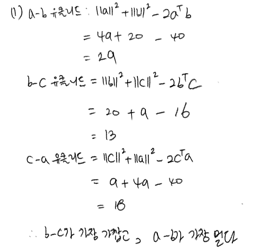 (1) a-b 유클리드 : ||a||² + ||b||² - 2aᵀb
= 49 + 20 - 40
= 29
b-c 유클리드 = ||b||² + ||c||² - 2bᵀc
= 20 + 9 - 16
= 13
c-a 유클리드 = ||c||² + ||a||² - 2cᵀa
= 9 + 49 - 40
= 18
∴ b-c가 가장 가깝고, a-b가 가장 멀다